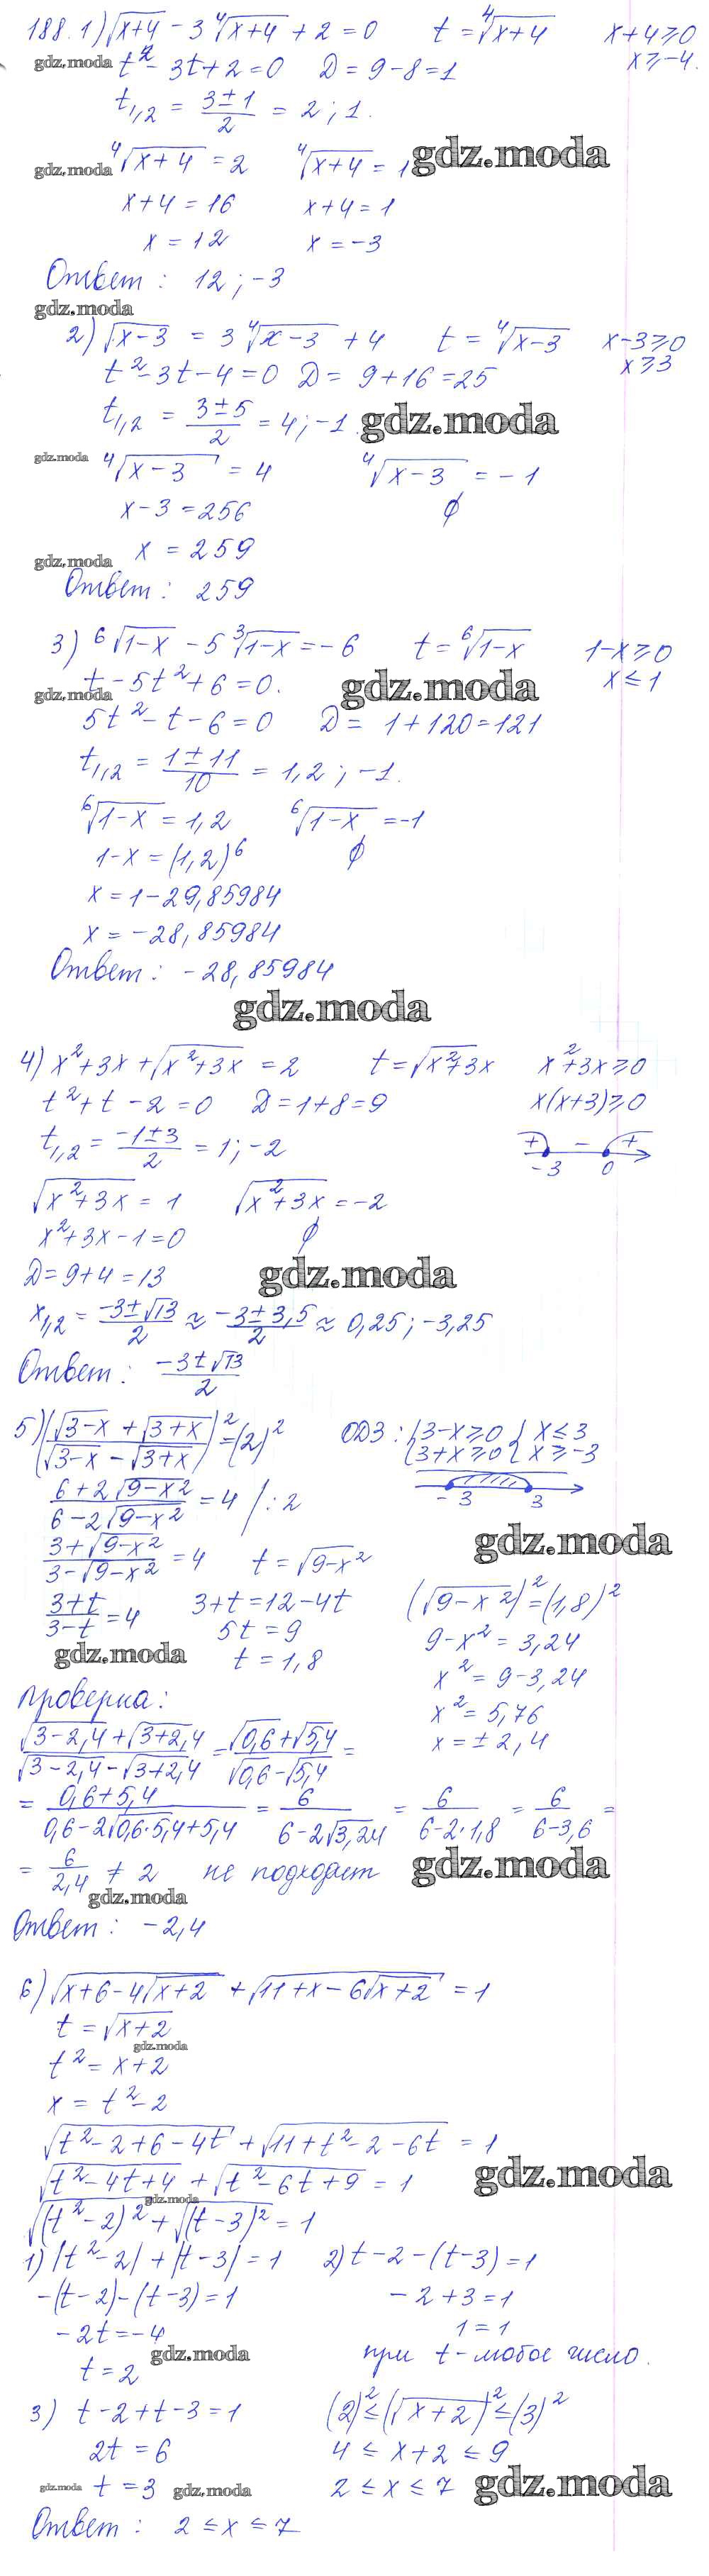 188. 1) √(x+4) - 3 ⁴√(x+4) + 2 = 0    t = ⁴√(x+4)    x+4 ≥ 0
gdz.moda t² - 3t + 2 = 0    D = 9 - 8 = 1    x ≥ -4.
t₁,₂ = (3 ± 1)/2 = 2 ; 1.
gdz.moda ⁴√(x+4) = 2    ⁴√(x+4) = 1 gdz.moda
x+4 = 16    x+4 = 1
x = 12    x = -3
Ответ : 12 ; -3
gdz.moda
2) √(x-3) = 3 ⁴√(x-3) + 4    t = ⁴√(x-3)    x-3 ≥ 0
t² - 3t - 4 = 0    D = 9 + 16 = 25    x ≥ 3
t₁,₂ = (3 ± 5)/2 = 4 ; -1. gdz.moda
gdz.moda ⁴√(x-3) = 4    ⁴√(x-3) = -1
x - 3 = 256    ∅
gdz.moda x = 259
Ответ : 259
3) ⁶√(1-x) - 5 ³√(1-x) = -6    t = ⁶√(1-x)    1-x ≥ 0
gdz.moda t - 5t² + 6 = 0. gdz.moda x ≤ 1
5t² - t - 6 = 0    D = 1 + 120 = 121
t₁,₂ = (1 ± 11)/10 = 1,2 ; -1.
⁶√(1-x) = 1,2    ⁶√(1-x) = -1
1-x = (1,2)⁶    ∅
x = 1 - 29,85984
x = -28,85984
Ответ : -28,85984
gdz.moda
4) x² + 3x + √(x²+3x) = 2    t = √(x²+3x)    x² + 3x ≥ 0
t² + t - 2 = 0    D = 1 + 8 = 9    x(x+3) ≥ 0
t₁,₂ = (-1 ± 3)/2 = 1 ; -2    + - +
-3 0
√(x²+3x) = 1    √(x²+3x) = -2
x² + 3x - 1 = 0    ∅
D = 9 + 4 = 13 gdz.moda
x₁,₂ = (-3 ± √13)/2 ≈ (-3 ± 3,5)/2 ≈ 0,25 ; -3,25
Ответ : (-3 ± √13)/2
5) ((√(3-x) + √(3+x))/(√(3-x) - √(3+x)))² = (2)²    ОДЗ : { 3-x ≥ 0 { x ≤ 3
{ 3+x ≥ 0 { x ≥ -3
(6 + 2√(9-x²))/(6 - 2√(9-x²)) = 4 / : 2    -3 3
gdz.moda
(3 + √(9-x²))/(3 - √(9-x²)) = 4    t = √(9-x²)
(3+t)/(3-t) = 4    3+t = 12 - 4t    (√(9-x²))² = (1,8)²
5t = 9    9 - x² = 3,24
gdz.moda t = 1,8    x² = 9 - 3,24
Проверка :    x² = 5,76
(√(3-2,4) + √(3+2,4))/(√(3-2,4) - √(3+2,4)) = (√0,6 + √5,4)/(√0,6 - √5,4) =    x = ± 2,4
= (0,6 + 5,4)/(0,6 - 2√(0,6·5,4) + 5,4) = 6/(6 - 2√3,24) = 6/(6 - 2·1,8) = 6/(6 - 3,6) =
= 6/2,4 ≠ 2 не подходит gdz.moda
gdz.moda
Ответ : -2,4
6) √(x+6-4√(x+2)) + √(11+x-6√(x+2)) = 1
t = √(x+2)
gdz.moda
t² = x+2
x = t² - 2
√(t²-2+6-4t) + √(11+t²-2-6t) = 1
√(t²-4t+4) + √(t²-6t+9) = 1 gdz.moda
gdz.moda
√((t²-2)²) + √((t-3)²) = 1
1) |t²-2| + |t-3| = 1    2) t-2-(t-3) = 1
-(t-2)-(t-3) = 1    -2+3 = 1
-2t = -4    1 = 1
gdz.moda
t = 2    при t - любое число.
3) t-2+t-3 = 1    (2)² ≤ (√(x+2))² ≤ (3)²
2t = 6    4 ≤ x+2 ≤ 9
gdz.moda t = 3 gdz.moda    2 ≤ x ≤ 7 gdz.moda
Ответ : 2 ≤ x ≤ 7